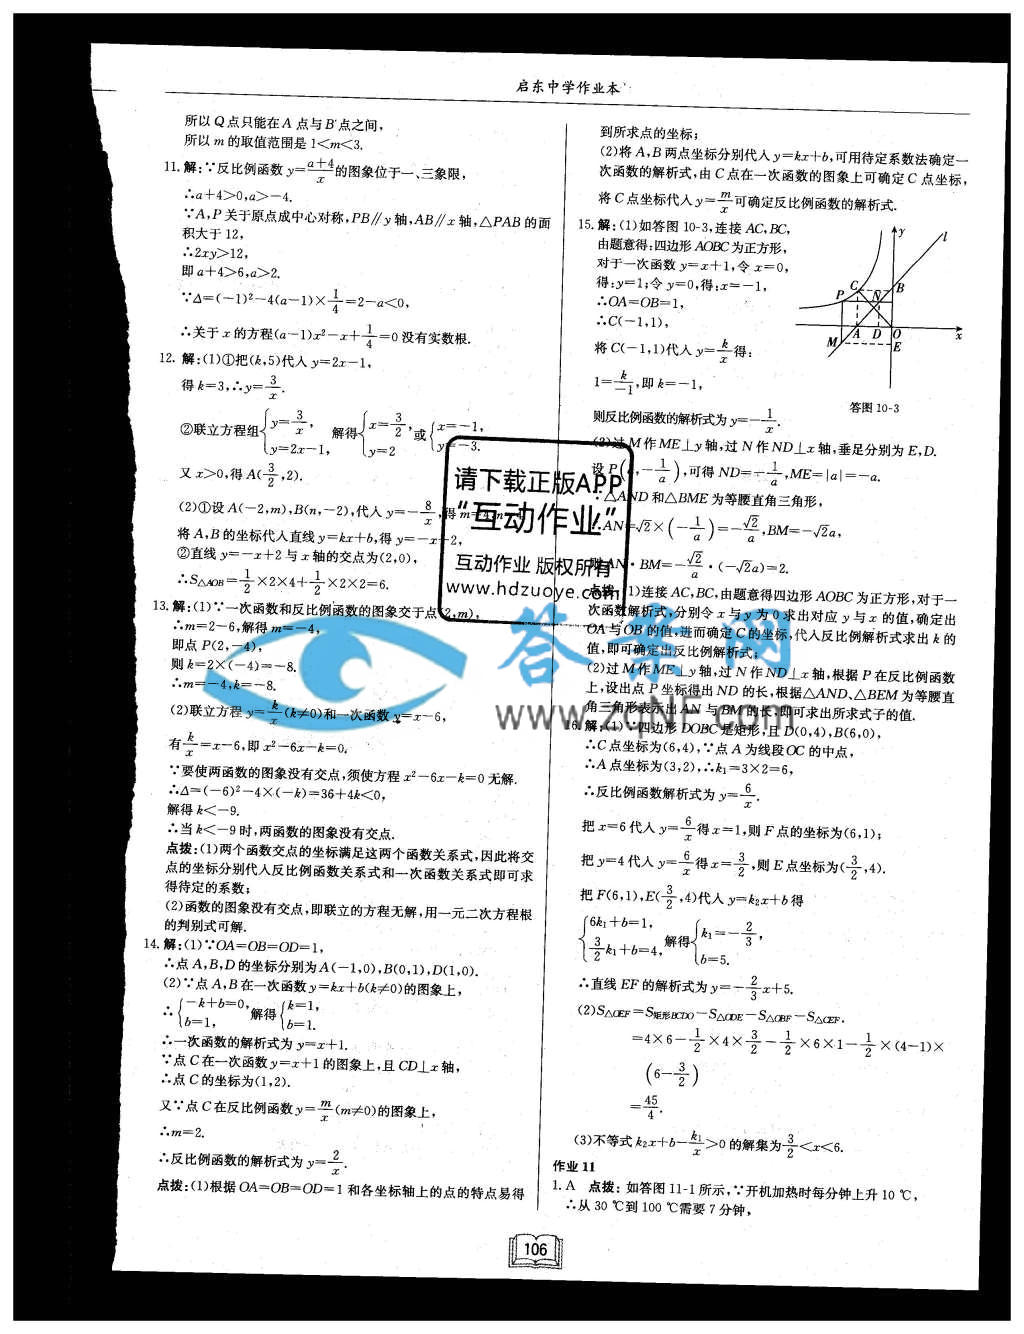 启东中学作业本
所以 Q 点只能在 A 点与 B 点之间,
所以 m 的取值范围是 1<m<3.
11. 解:∵反比例函数 y=\frac{a+4}{x}的图象位于一、三象限,
∴a+4>0,a>-4.
∵A,P 关于原点成中心对称,PB∥y 轴,AB∥x 轴,△PAB 的面
积大于 12,
∴2xy>12,
即 a+4>6,a>2.
∵Δ=(-1)²-4(a-1)×\frac{1}{4}=2-a<0,
∴关于 x 的方程(a-1)x²-x+\frac{1}{4}=0 没有实数根.
12. 解:(1)①把(k,5)代入 y=2x-1,
得 k=3,∴y=\frac{3}{x}.
②联立方程组{y=\frac{3}{x}, y=2x-1, 解得{x=\frac{3}{2}, y=2 或{x=-1, y=-3.
又 x>0,得 A(\frac{3}{2},2).
(2)①设 A(-2,m),B(n,-2),代入 y=-\frac{8}{x},得 m=4,n=4
将 A,B 的坐标代入直线 y=kx+b,得 y=-x+2,
②直线 y=-x+2 与 x 轴的交点为(2,0),
∴S△AOB=\frac{1}{2}×2×4+\frac{1}{2}×2×2=6.
13. 解:(1)∵一次函数和反比例函数的图象交于点(2,m),
∴m=2-6,解得 m=-4,
即点 P(2,-4),
则 k=2×(-4)=-8.
∴m=-4,k=-8.
(2)联立方程 y=\frac{k}{x}(k≠0)和一次函数 y=x-6,
有\frac{k}{x}=x-6,即 x²-6x-k=0.
∵要使两函数的图象没有交点,须使方程 x²-6x-k=0 无解.
∴Δ=(-6)²-4×(-k)=36+4k<0,
解得 k<-9.
∴当 k<-9 时,两函数的图象没有交点.
点拨:(1)两个函数交点的坐标满足这两个函数关系式,因此将交
点的坐标分别代入反比例函数关系式和一次函数关系式即可求
得待定的系数;
(2)函数的图象没有交点,即联立的方程无解,用一元二次方程根
的判别式可解.
14. 解:(1)∵OA=OB=OD=1,
∴点 A,B,D 的坐标分别为 A(-1,0),B(0,1),D(1,0).
(2)∵点 A,B 在一次函数 y=kx+b(k≠0)的图象上,
∴{-k+b=0, b=1, 解得{k=1, b=1.
∴一次函数的解析式为 y=x+1.
∵点 C 在一次函数 y=x+1 的图象上,且 CD⊥x 轴,
∴点 C 的坐标为(1,2).
又∵点 C 在反比例函数 y=\frac{m}{x}(m≠0)的图象上,
∴m=2.
∴反比例函数的解析式为 y=\frac{2}{x}.
点拨:(1)根据 OA=OB=OD=1 和各坐标轴上的点的特点易得
到所求点的坐标;
(2)将 A,B 两点坐标分别代入 y=kx+b,可用待定系数法确定一
次函数的解析式,由 C 点在一次函数的图象上可确定 C 点坐标,
将 C 点坐标代入 y=\frac{m}{x}可确定反比例函数的解析式.
15. 解:(1)如答图 10-3,连接 AC,BC,
由题意得:四边形 AOBC 为正方形,
对于一次函数 y=x+1,令 x=0,
得:y=1;令 y=0,得:x=-1,
∴OA=OB=1,
∴C(-1,1),
将 C(-1,1)代入 y=\frac{k}{x}得:
1=\frac{k}{-1},即 k=-1,
则反比例函数的解析式为 y=-\frac{1}{x}.
y
l
C
B
P
N
A
D
O
x
M
E
答图 10-3
(2)过 M 作 ME⊥y 轴,过 N 作 ND⊥x 轴,垂足分别为 E,D.
设 P(a,-\frac{1}{a}),可得 ND=-\frac{1}{a},ME=|a|=-a.
∵△AND 和△BME 为等腰直角三角形,
∴AN=√2×(-\frac{1}{a})=-\frac{√2}{a},BM=-√2a,
则 AN·BM=-\frac{√2}{a}·(-√2a)=2.
点拨:(1)连接 AC,BC,由题意得四边形 AOBC 为正方形,对于一
次函数解析式,分别令 x 与 y 为 0 求出对应 y 与 x 的值,确定出
OA 与 OB 的值,进而确定 C 的坐标,代入反比例解析式求出 k 的
值,即可确定出反比例解析式;
(2)过 M 作 ME⊥y 轴,过 N 作 ND⊥x 轴,根据 P 在反比例函数
上,设出点 P 坐标得出 ND 的长,根据△AND、△BEM 为等腰直
角三角形表示出 AN 与 BM 的长,即可求出所求式子的值.
16. 解:(1)∵四边形 DOBC 是矩形,且 D(0,4),B(6,0),
∴C 点坐标为(6,4),∵点 A 为线段 OC 的中点,
∴A 点坐标为(3,2),∴k₁=3×2=6,
∴反比例函数解析式为 y=\frac{6}{x}.
把 x=6 代入 y=\frac{6}{x}得 x=1,则 F 点的坐标为(6,1);
把 y=4 代入 y=\frac{6}{x}得 x=\frac{3}{2},则 E 点坐标为(\frac{3}{2},4).
把 F(6,1),E(\frac{3}{2},4)代入 y=k₂x+b 得
{6k₁+b=1, \frac{3}{2}k₁+b=4, 解得{k₁=-\frac{2}{3}, b=5.
∴直线 EF 的解析式为 y=-\frac{2}{3}x+5.
(2)S△OEF=S矩形BCDO-S△ODE-S△OBF-S△CEF.
=4×6-\frac{1}{2}×4×\frac{3}{2}-\frac{1}{2}×6×1-\frac{1}{2}×(4-1)×
(6-\frac{3}{2})
=\frac{45}{4}.
(3)不等式 k₂x+b-\frac{k₁}{x}>0 的解集为\frac{3}{2}<x<6.
作业 11
1. A 点拨:如答图 11-1 所示,∵开机加热时每分钟上升 10 ℃,
∴从 30 ℃到 100 ℃需要 7 分钟,
106
请下载正版APP
“互动作业”
互动作业 版权所有
www.hdzuoye.com
答案网
www.zqnf.com